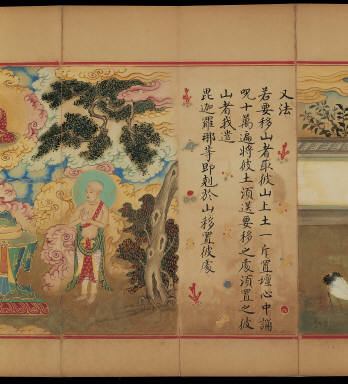 又法
若要移山者取彼山上土一斤置壇心中誦
呪十萬遍將彼土須要移之處須置之彼
山者我造
毘迦羅那寺即剋於山移置彼處